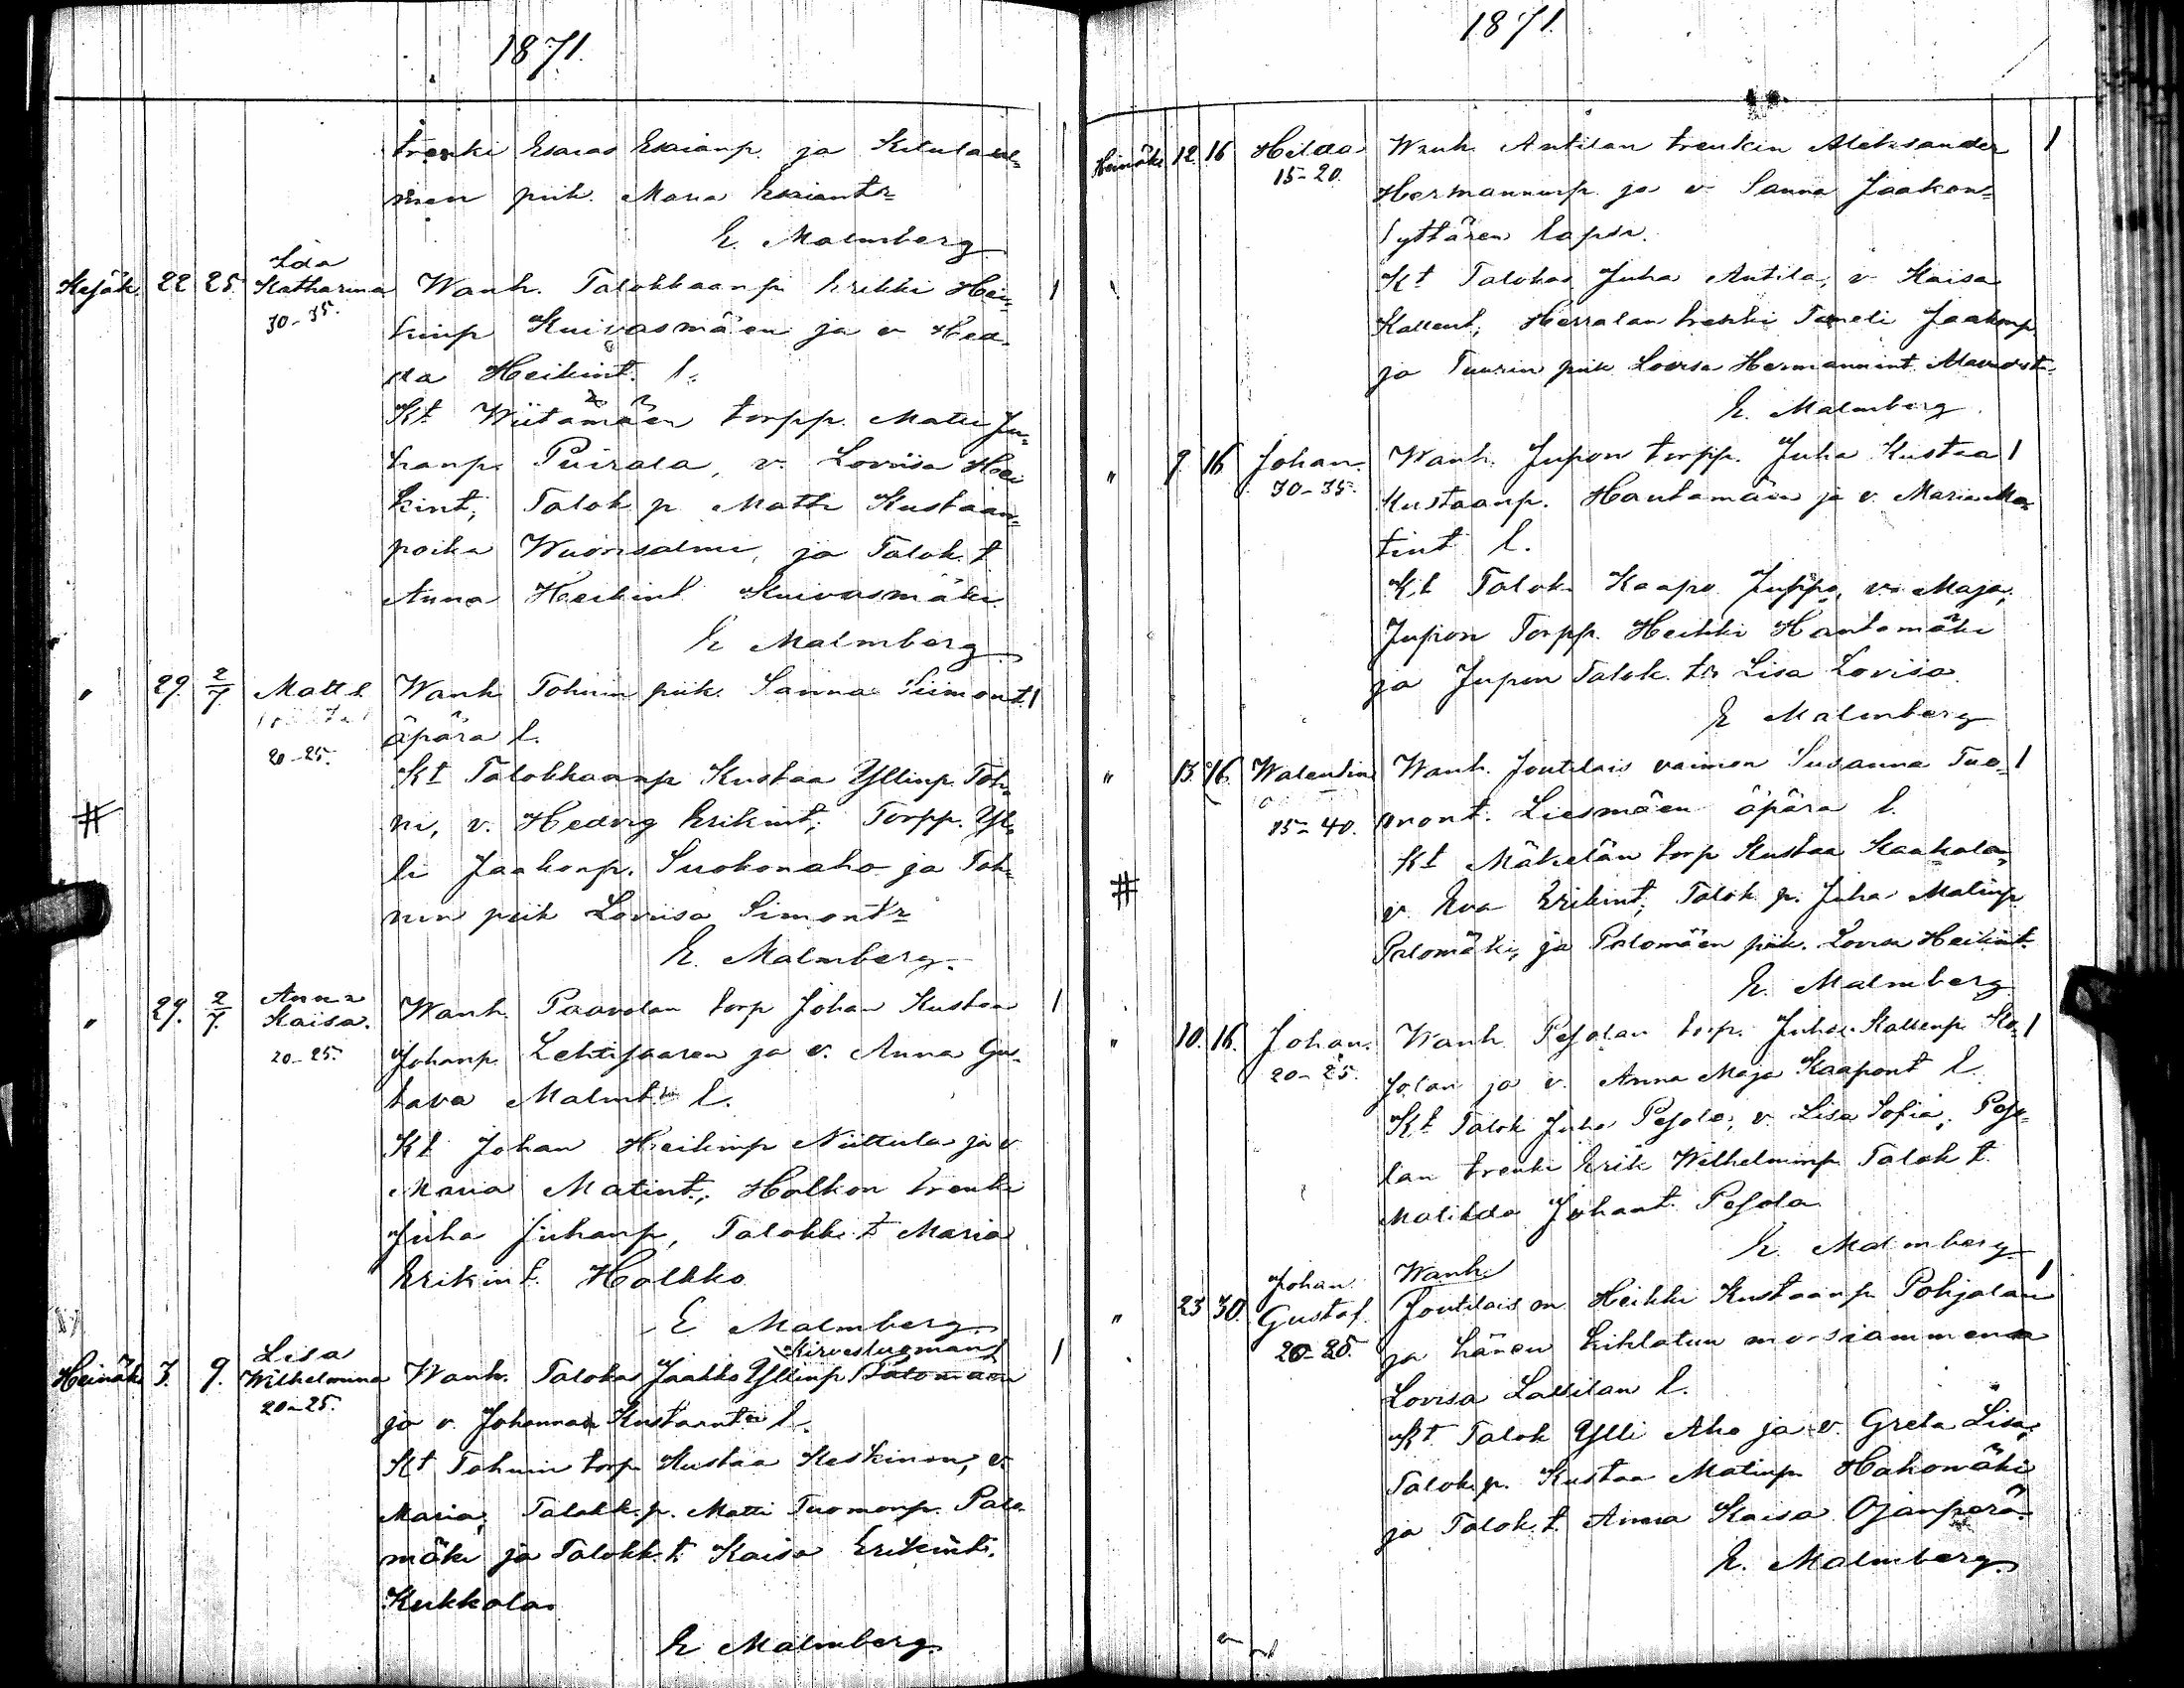 1871.
trenki Esaias Esaianp. ja
piik. Maria Esaiantr
E. Malmberg
Kesäk. 22 25. Ida Katharina 30-35. Wanh. Talokkaanp. Erikki Hei= 1
kinp Kuivasmäen ja v Hed=
da Heikint. l.
Kt Wiitamäen torpp. Matti Ju=
hanp. Puirala, v. Loviisa Hei
kint; Talok p Matti Kustaan=
poika Wuorisalmi, ja Talok. t
Anna Heikint Kuivasmäki
E Malmberg
" 29. 2/7. Matts 20-25. Wanh Tohnin piik. Sanna Siimont. 1
äpärä l.
Kt Talokkaanp Kustaa Yllinp. Toh=
ni, v. Hedvig Erikint; Torpp. Yl=
li Jaakonp. Suokonaho ja Toh=
nin piik Loviisa Simontr
#
E. Malmberg.
" 29. 2/7. Anna Kaisa. 20-25. Wanh. Paavolan torp Johan Kustaa 1
Johanp. Lehtisaaren ja v. Anna Gus=
tava l.
Kt Johan Heikinp Niittula ja v
Maria Matint; Holkon trenki
Juha Juhanp, Talokk. t Maria
Erikint. Holkko
E Malmberg.
Kirvesluoman
Heinäk 3. 9. Lisa Wilhelmina 20-25. Wanh. Talokas Jaakko Yllinp Palomäen 1
ja v. Johanna Kustaantr l.
Kt Tohnin torp Kustaa Keskinen, v.
Maria; Talokk. p. Matti Tuomonp. Palo=
mäki ja Talokk. t. Kaisa Erikint.
Kukkola
E Malmberg.
1871.
Heinäk. 12. 16 Hilda 15-20. Wanh. Antilan trenkin Aleksander 1
Hermanninp. ja v Sanna Jaakon=
tyttären lapsi.
Kt Talokas Juha Antila, v Kaisa
Kallent; Herralan trenki Taneli Jaakonp.
ja Tuurin piik Lovisa Hermannint
E. Malmberg.
" 9. 16 Johan. 30-35. Wanh. Jupon torpp. Juha Kustaa 1
Kustaanp. Hautamäen ja v. Maria Ma=
tint l.
Kt Talok. Kaapo Juppo, v. Maja;
Jupon Torpp. Heikki Hautamäki
ja Jupon Talok. tr Lisa Lovisa
E Malmberg
" 13. 16. Walentin 35-40. Wanh. Joutilais vaimon Susanna Tuo= 1
mont. Liesmäen äpärä l.
Kt Mäkelän torp Kustaa Kaakola,
v. Eva Erikint; Talok. p. Juha Matinp
Palomäki, ja Palomäen piik. Lovisa Heikint.
#
E. Malmberg
" 10. 16. Johan. 20-25. Wanh Pesolan torp. Juha Kallenp. 1
ja v. Anna Maja Kaapont l
Kt Talok Juha Pesola, v. Lisa Sofia; Peso=
lan trenki Erik Wilhelminp Talok t.
Matilda Johant. Pesola
E. Malmberg
Wanh.
" 23 30. Johan Gustaf. 20-25. Joutilais m. Heikki Kustaanp Pohjolan 1
ja hänen kihlatun morsiammensa
Lovisa Lassilan l.
Kt. Talok Ylli Aho ja v. Greta Lisa;
Talok p. Kustaa Matinp Hakomäki
ja Talok. t. Anna Kaisa Ojanperä.
E. Malmberg.